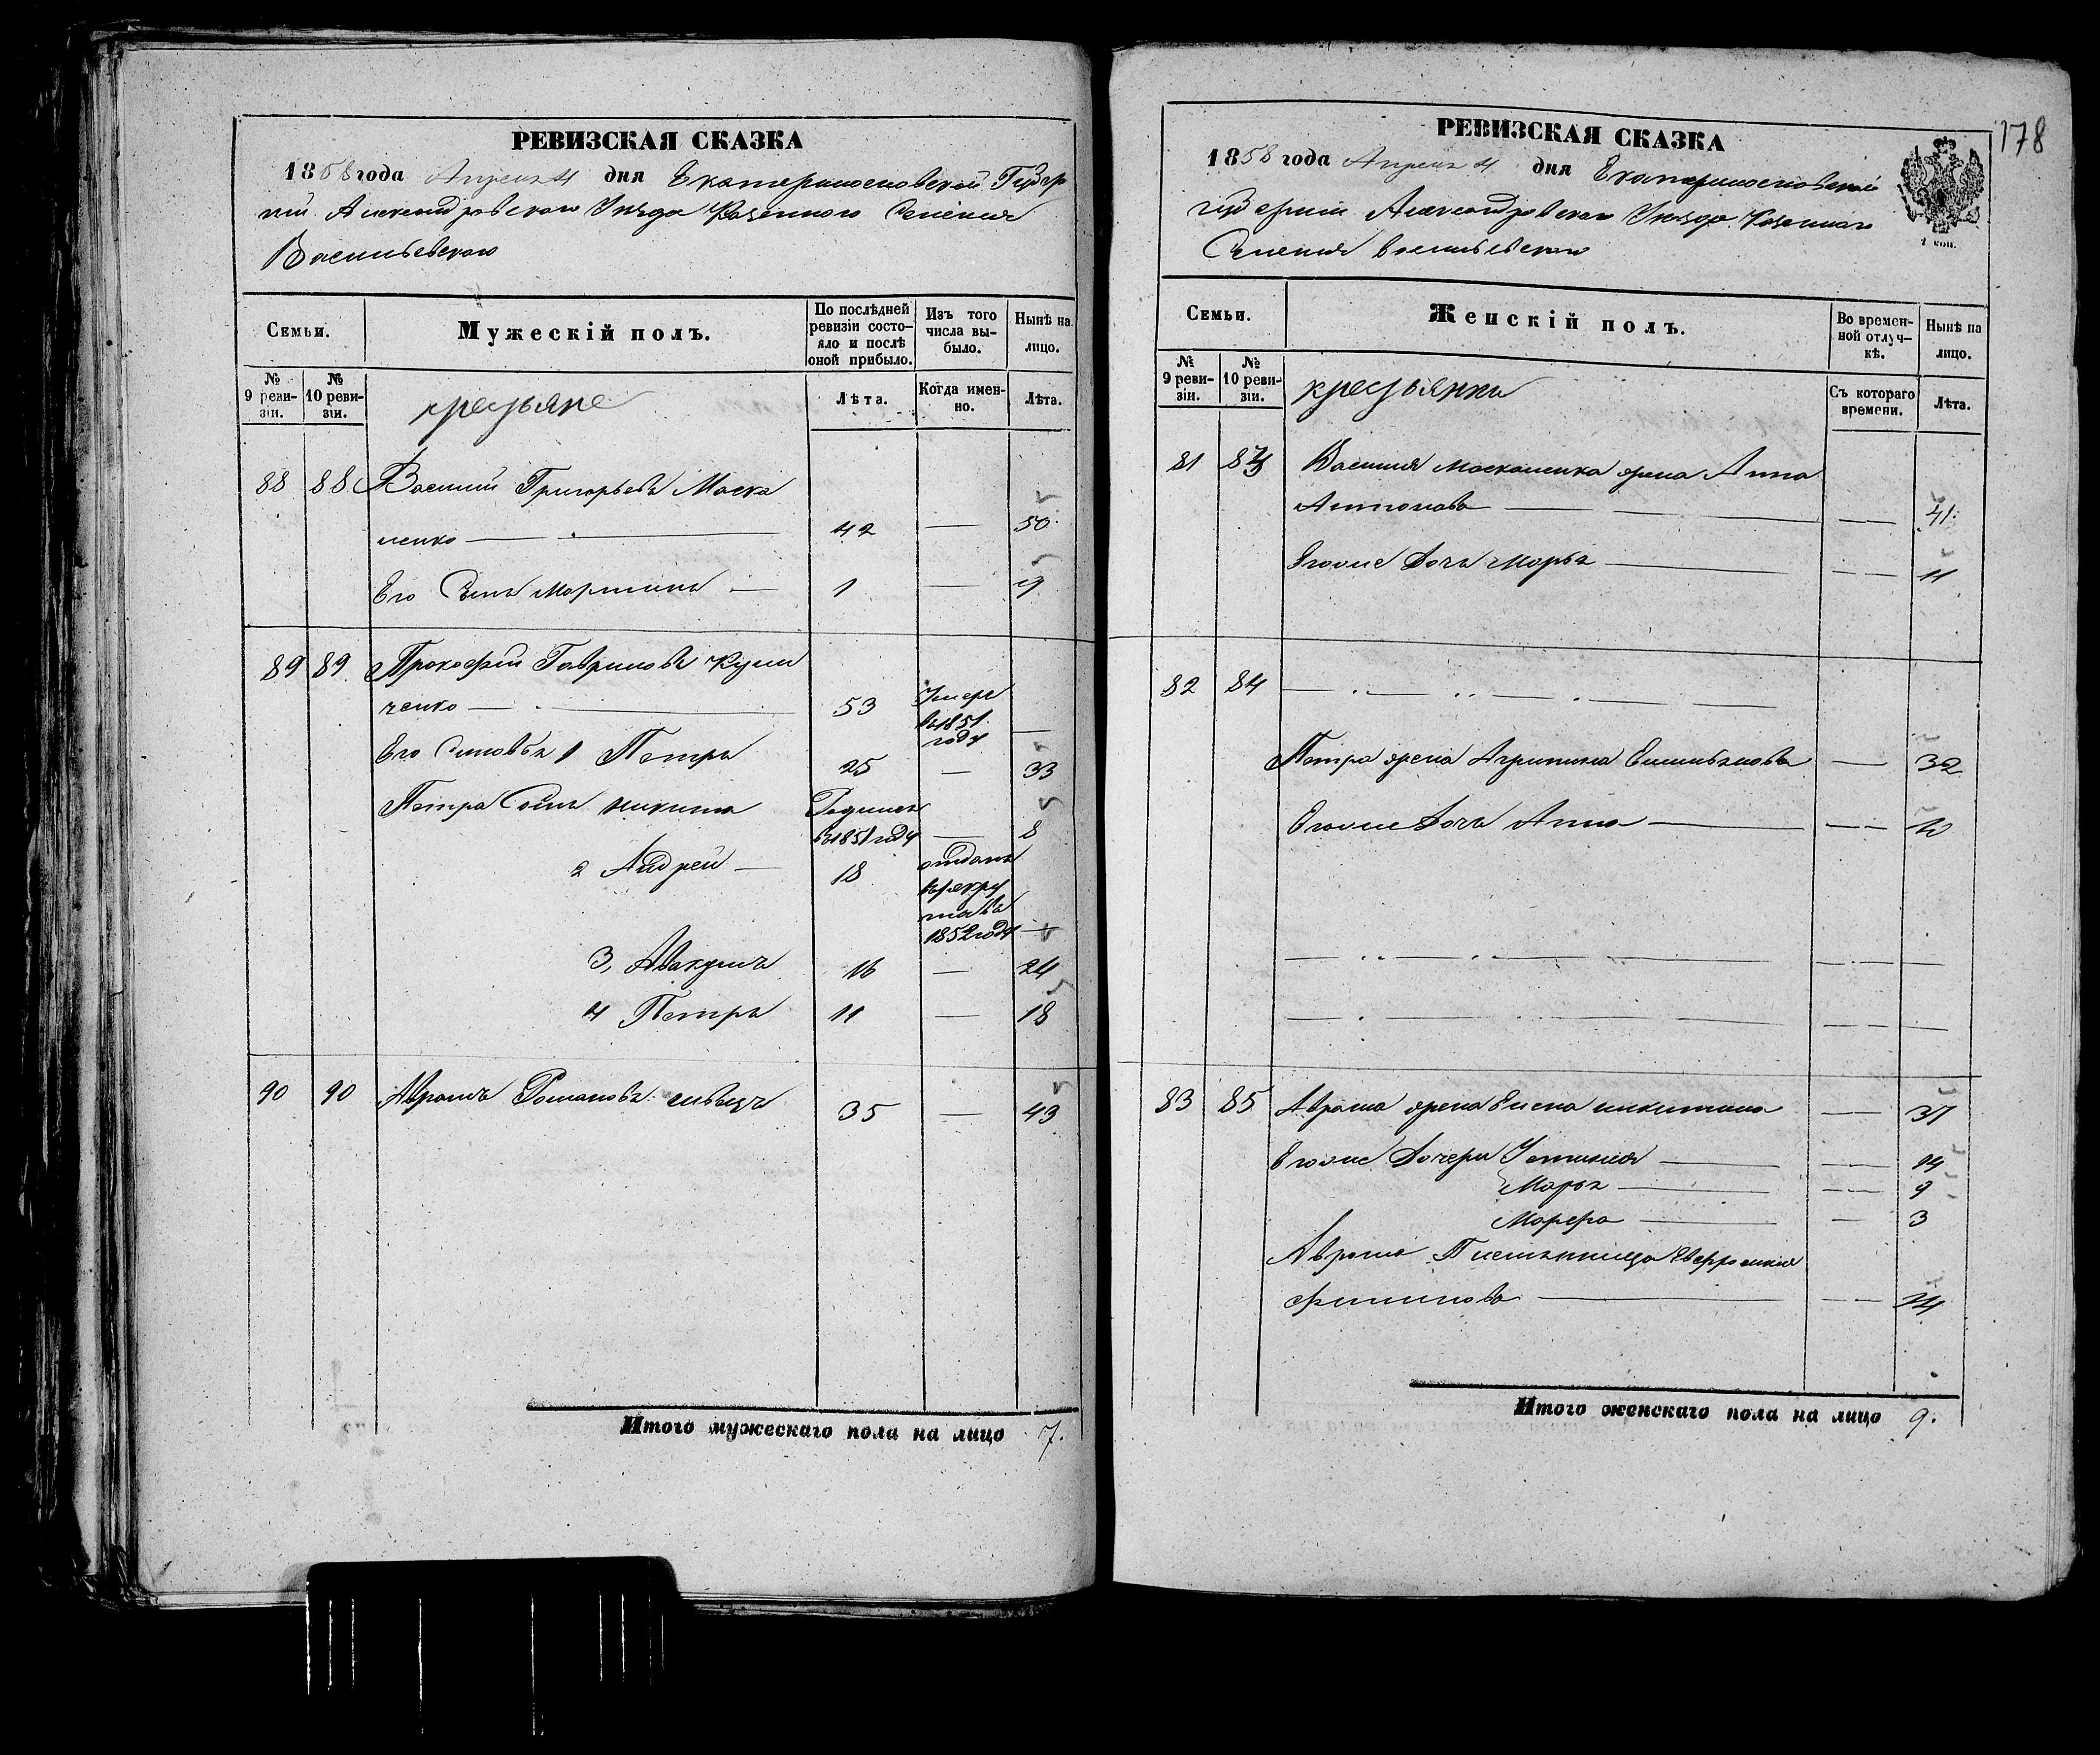 РЕВИЗСКАЯ СКАЗКА
1858 года Апреля 4 дня Екатеринославской Губер
нии Александровского Уезда Казенного Селения
Васильевского
Семьи.
Мужескій полъ.
По послѣдней ревизіи состояло и послѣ оной прибыло.
Изъ того числа выбыло.
Нынѣ на лицо.
№ 9 ревизіи.
№ 10 ревизіи.
крестьяне
Лѣта.
Когда именно.
Лѣта.
88 88 Василий Григорьевъ Моска
ленко 42 — 50
Его Сынъ Мартинъ — 1 — 9
89 89 Прокофий Гавриловъ Кули
ченко — 53 Умеръ въ 1851 году —
Его Сыновья 1 Петръ 25 — 33
Петра Сынъ Никита Родился въ 1851 году — 8
2 Андрей — 18 отданъ въ рекруты въ 1852 году —
3, Авакумъ 16 — 24
4 Петръ 11 — 18
90 90 Аврамъ Романовъ 35 — 43
Итого мужескаго пола на лицо 7.
178
РЕВИЗСКАЯ СКАЗКА
1858 года Апреля 4 дня Екатеринославской
губернии Александровского Уезда Казенного
Селения Васильевского
1 коп.
Семьи.
Женскій полъ.
Во временной отлучкѣ.
Нынѣ на лицо.
№ 9 ревизіи.
№ 10 ревизіи.
крестьянки
Съ котораго времени.
Лѣта.
81 83 Василия Москаленка жена Анна
Антонова — — 41
Его Дочь Марья — — 11
82 84 —
Петра жена Агрипина Емельянова — 32
Дочь Анна — —
83 85 Аврама жена Елена Никитина — 37
Дочери Устиния — — 14
Марья — — 9
Марфа — — 3
Аврама Племянница Евфросиния
Филипова — —
Итого женскаго пола на лицо 9.